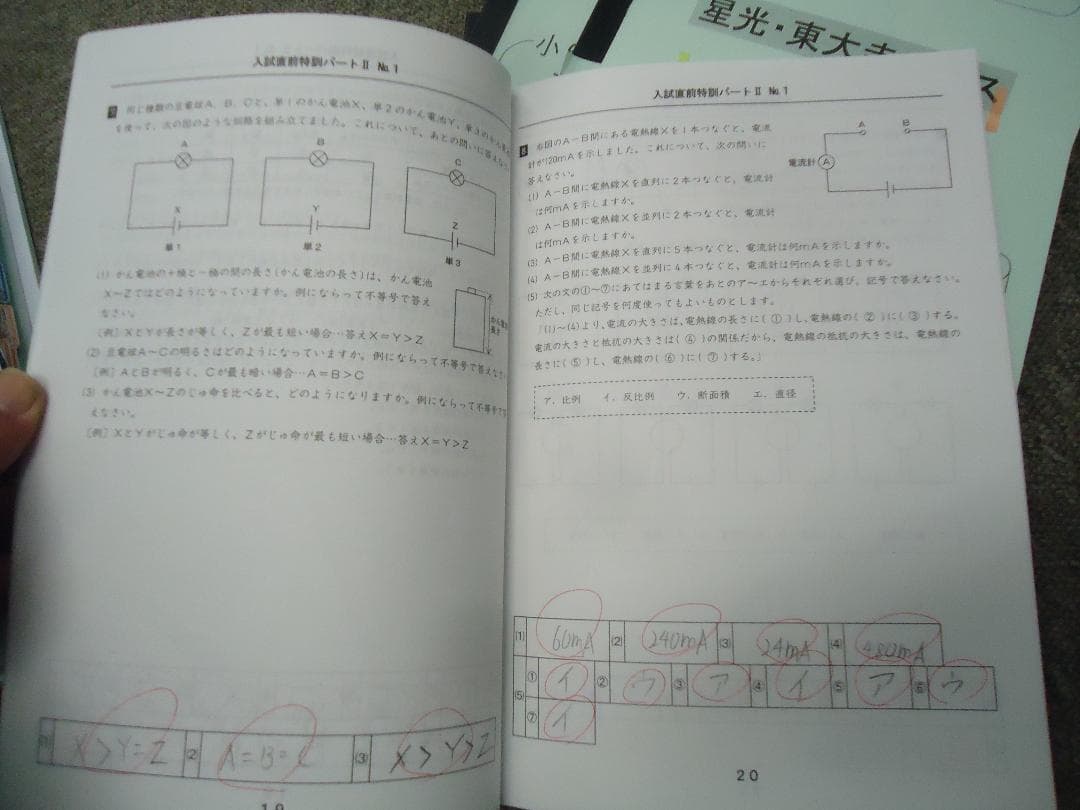 星光・東大寺
ス
小
入試直前特訓パートⅡ №1
同じ種類の豆電球A、B、Cと、単1のかん電池X、単2のかん電池Y、単3のかん電
を使って、次の図のような回路を組み立てました。これについて、あとの問いに答えな
A
B
C
X
Y
Z
単1
単2
単3
(1) かん電池の+極と-極の間の長さ(かん電池の長さ)は、かん電池
X~Zではどのようになっていますか。例にならって不等号で答え
なさい。
かん電池の
長さ
[例] XとYが長さが等しく、Zが最も短い場合…答えX=Y>Z
(2) 豆電球A~Cの明るさはどのようになっていますか。例にならって不等号で答えなさい
[例] AとBが明るく、Cが最も暗い場合…A=B>C
(3) かん電池X~Zのじゅ命を比べると、どのようになりますか。例にならって不等号で
えなさい。
[例] XとYがじゅ命が等しく、Zがじゅ命が最も短い場合…答えX=Y>Z
X>Y=Z ② A=B=C ③ X>Y>Z
19
入試直前特訓パートⅡ №1
6 右図のA-B間にある電熱線Xを1本つなぐと、電流
計が120mAを示しました。これについて、次の問いに
答えなさい。
A
B
電流計 A
(1) A-B間に電熱線Xを直列に2本つなぐと、電流計
は何mAを示しますか。
(2) A-B間に電熱線Xを並列に2本つなぐと、電流計
は何mAを示しますか。
(3) A-B間に電熱線Xを直列に5本つなぐと、電流計は何mAを示しますか。
(4) A-B間に電熱線Xを並列に4本つなぐと、電流計は何mAを示しますか。
(5) 次の文の①~⑦にあてはまる言葉をあとのア~エからそれぞれ選び、記号で答えなさい。
ただし、同じ記号を何度使ってもよいものとします。
「(1)~(4)より、電流の大きさは、電熱線の長さに( ① )し、電熱線の( ② )に( ③ )する。
電流の大きさと抵抗の大きさは( ④ )の関係だから、電熱線の抵抗の大きさは、電熱線の
長さに( ⑤ )し、電熱線の( ⑥ )に( ⑦ )する。」
ア. 比例 イ. 反比例 ウ. 断面積 エ. 直径
(1) 60mA (2) 240mA ③ 24mA ④ 480mA
(5) ① イ ② ウ ③ ア ④ イ ⑤ ア ⑥ ウ
⑦ イ
20